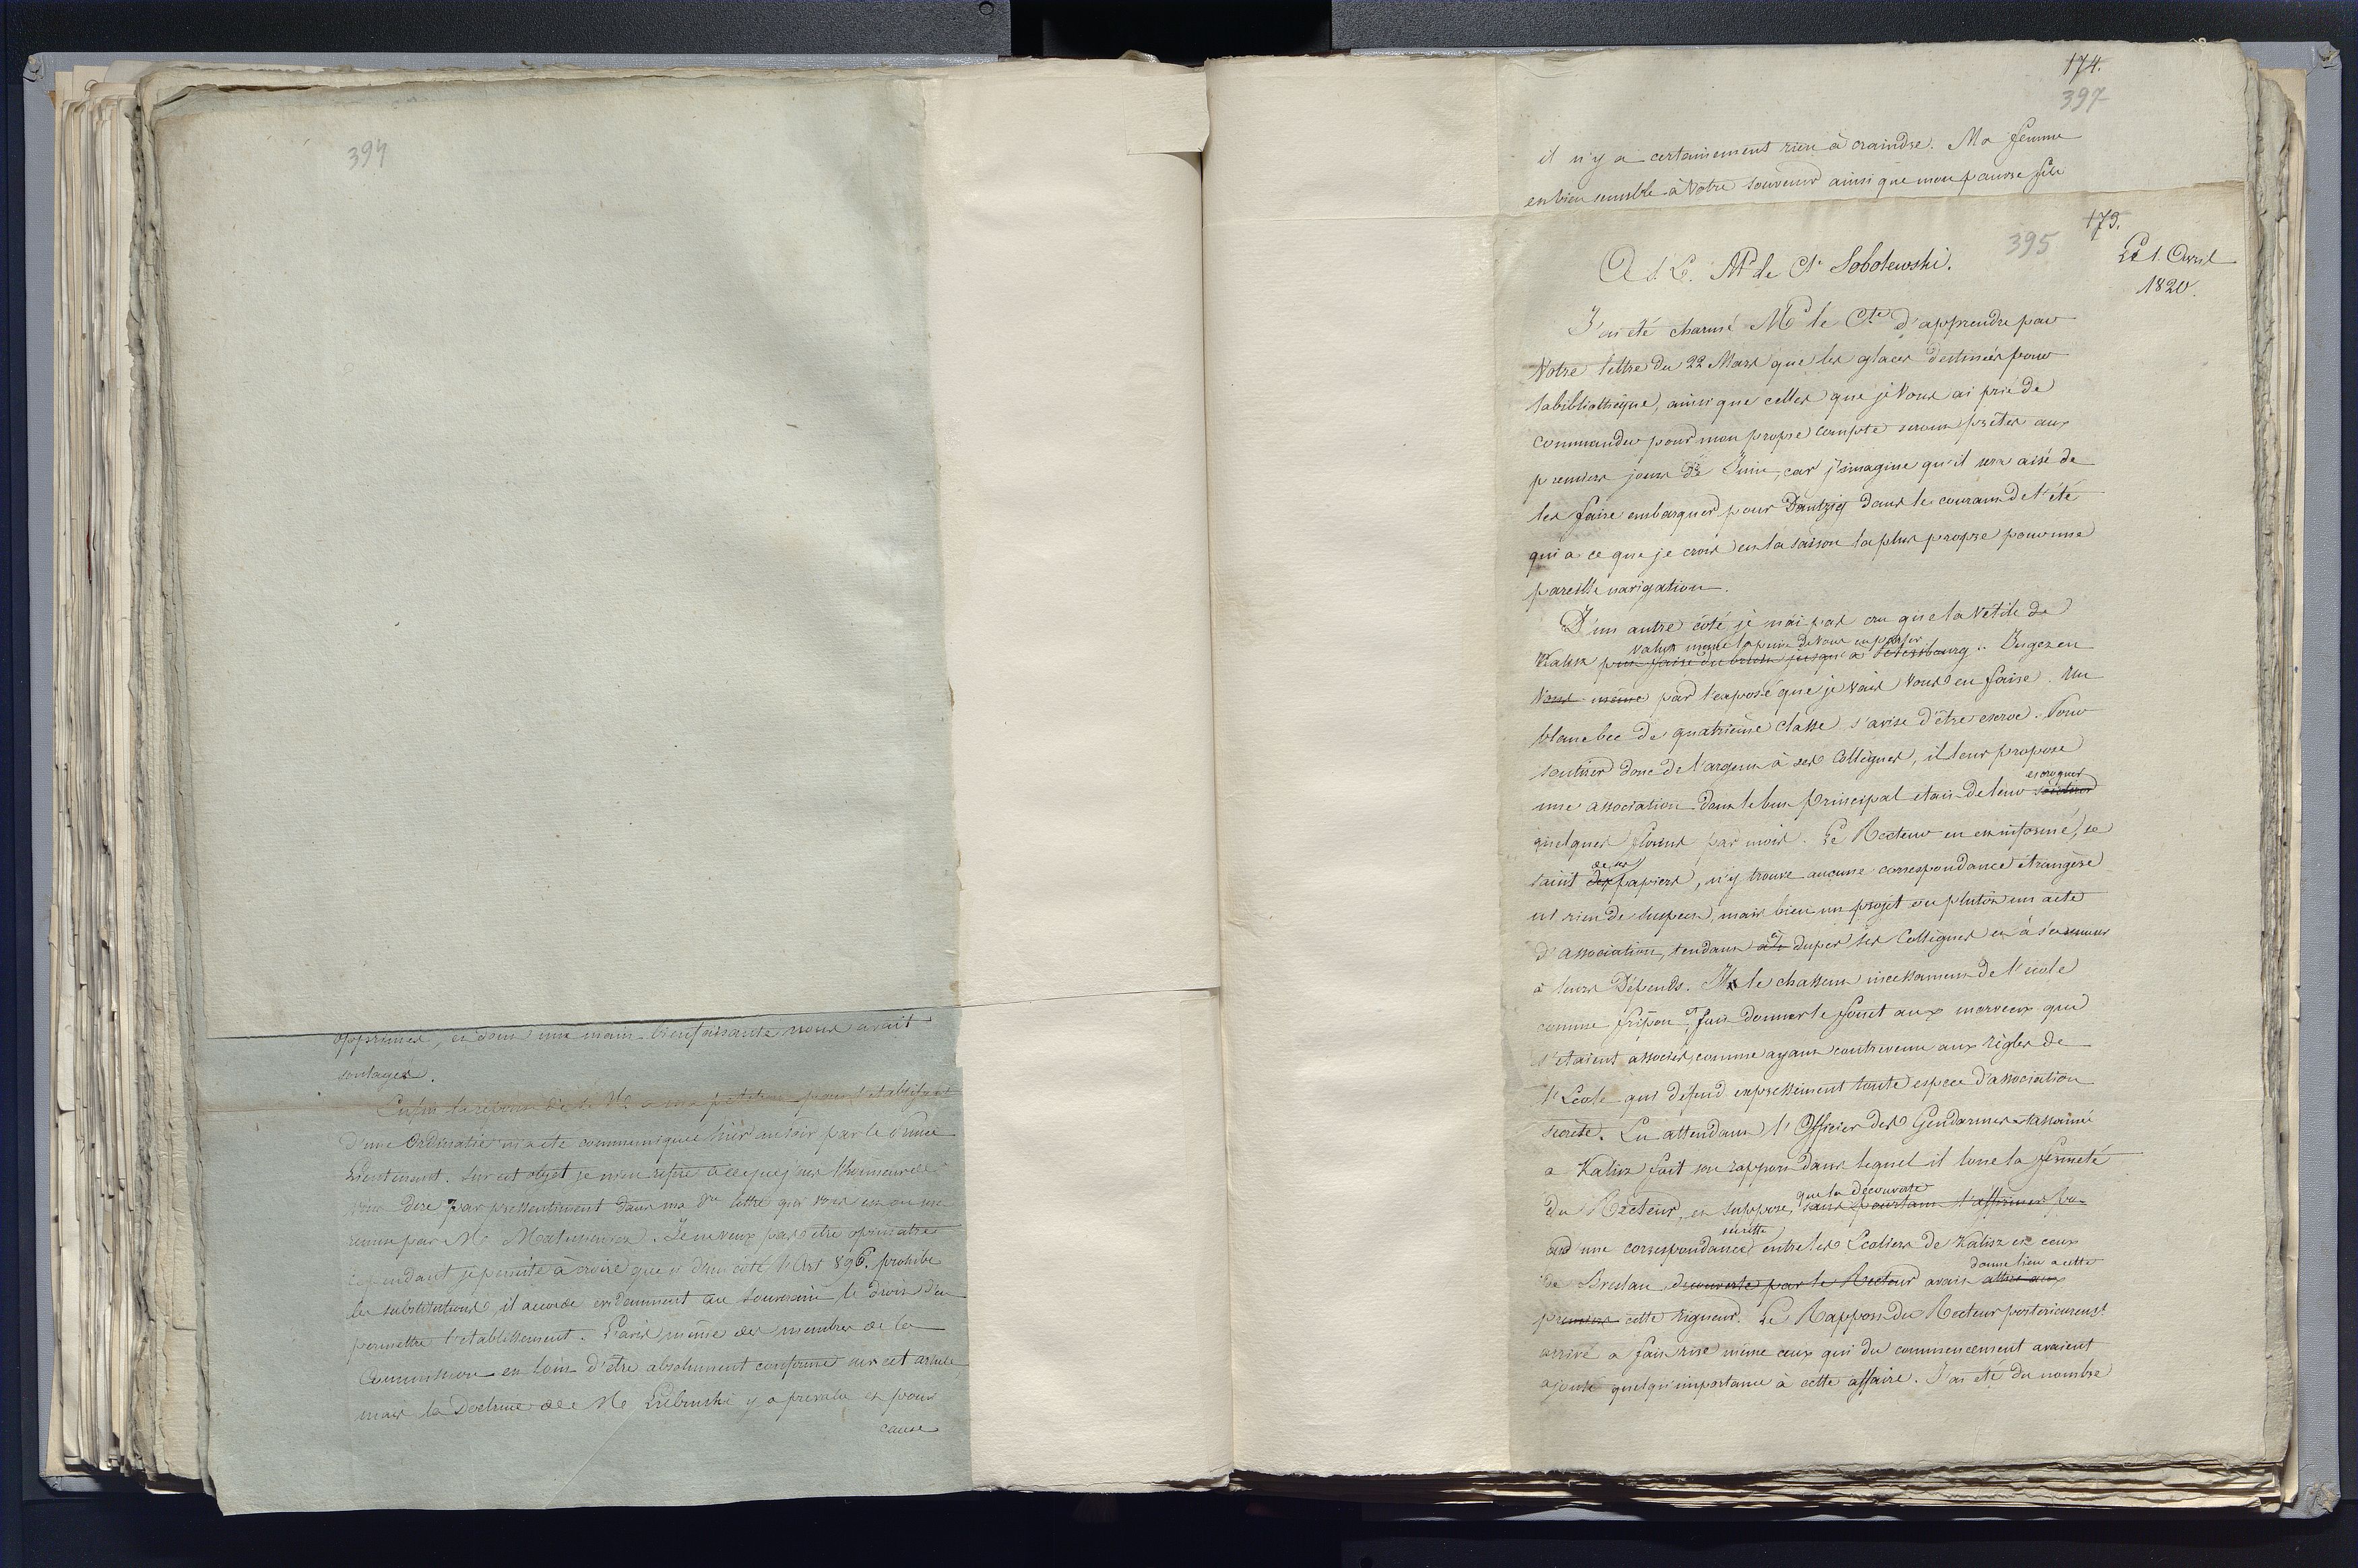 394
opprimer, et dont une main bienfaisante nous avait
soulagés.
Enfin la réponse de S. M. a ma petition pour l'etablissmt
d'une Ordinatie m'a été communiquée hier au soir par le Prince
Lieutenant. Sur cet objet je m'en refère à ce que j'eus l'honneur de
vous dire par pressentiment dans ma dre lettre qui vous
remise par Mr Matusewicz. Je ne veux pas être opiniatre
cependant je persiste à croire que si d'un côté l'Art 896. prohibe
les substitutions, il accorde evidemment au Souverain le droit d'en
permettre l'etablissement. L'avis même des membres de la
Commission est loin d'être absolument conforme sur cet article,
mais la Doctrine de Mr Lubinski y a prevalu et pour
cause
174.
397
il n'y a certainement rien à craindre. Ma femme
est bien sensible à Votre souvenir ainsi que mon pauvre fils
173.
395
Le 1. Avril
1820.
A S. E. Mr le Cte Sobolewski.
J'ai été charmé Mr le Cte d'apprendre par
Votre lettre du 22 Mars que les glaces destinées pour
la bibliothèque, ainsi que celles que je Vous ai prié de
commander pour mon propre compte seront prêtes aux
premiers jours de Juin, car j'imagine qu'il sera aisé de
les faire embarquer pour Dantzig dans le courant de l'été
qui a ce que je crois est la saison la plus propre pour une
pareille navigation.
D'un autre coté je n'ai pas cru que la Vetille de
valut meme la peine de Vous en parler
Kalisz put faire du bruit jusqu'à Petersbourg. Jugez en
Vous-même par l'exposé que je vais Vous en faire. Un
blanc bec de quatrième Classe s'avise d'être escroc. Pour
soutirer donc de l'argent à ses Collègues, il leur propose
escroquer
une association dont le but principal etait de leur soutirer
quelques florins par mois. Le Recteur en est informé, se
de ses
saisit des papiers, n'y trouve aucune correspondance étrangère
ni rien de suspect, mais bien un projet ou plutôt un acte
d'association, tendant à duper ses Collègues et à s'amuser
à leurs Dépends. Il le chassent incessamment de l'école
comme fripon et fait donner le fouet aux morveux qui
s'etaient associés, comme ayant contrevenu aux règles de
l'Ecole qui défend expressement toute espece d'association
secrete. En attendant l'Officier des Gendarmes stationné
a Kalisz fait son rapport dans lequel il loue la fermeté
que la decouverte
du Recteur, et suppose, sans pourtant l'affirmer
secrette
d'une correspondance entre les Ecoliers de Kalisz et ceux
donné lieu a cette
de Breslau decouverte par le Recteur avait attiré aux
premiers cette rigueur. Le Rapport du Recteur posterieuremt
arrivé a fait rire même ceux qui du commencement avaient
ajouté quelqu'importance à cette affaire. J'ai été du nombre